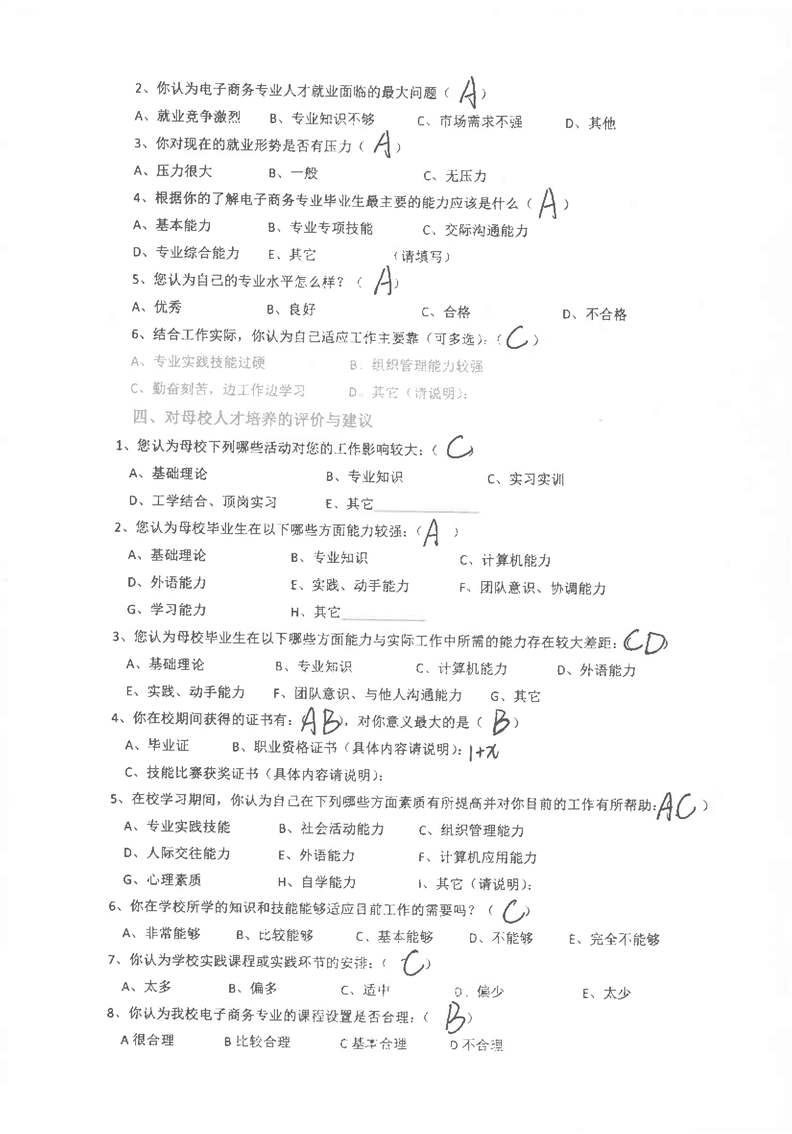 2、你认为电子商务专业人才就业面临的最大问题（ A ）
A、就业竞争激烈 B、专业知识不够 C、市场需求不强 D、其他
3、你对现在的就业形势是否有压力（ A ）
A、压力很大 B、一般 C、无压力
4、根据你的了解电子商务专业毕业生最主要的能力应该是什么（ A ）
A、基本能力 B、专业专项技能 C、交际沟通能力
D、专业综合能力 E、其它 （请填写）
5、您认为自己的专业水平怎么样？（ A ）
A、优秀 B、良好 C、合格 D、不合格
6、结合工作实际，你认为自己适应工作主要靠（可多选）：（ C ）
A、专业实践技能过硬 B、组织管理能力较强
C、勤奋刻苦，边工作边学习 D、其它（请说明）：
四、对母校人才培养的评价与建议
1、您认为母校下列哪些活动对您的工作影响较大：（ C ）
A、基础理论 B、专业知识 C、实习实训
D、工学结合、顶岗实习 E、其它______________
2、您认为母校毕业生在以下哪些方面能力较强：（ A ）
A、基础理论 B、专业知识 C、计算机能力
D、外语能力 E、实践、动手能力 F、团队意识、协调能力
G、学习能力 H、其它___________
3、您认为母校毕业生在以下哪些方面能力与实际工作中所需的能力存在较大差距：（CD）
A、基础理论 B、专业知识 C、计算机能力 D、外语能力
E、实践、动手能力 F、团队意识、与他人沟通能力 G、其它
4、你在校期间获得的证书有：（AB），对你意义最大的是（ B ）
A、毕业证 B、职业资格证书（具体内容请说明）：1+x
C、技能比赛获奖证书（具体内容请说明）：
5、在校学习期间，你认为自己在下列哪些方面素质有所提高并对你目前的工作有所帮助：（AC ）
A、专业实践技能 B、社会活动能力 C、组织管理能力
D、人际交往能力 E、外语能力 F、计算机应用能力
G、心理素质 H、自学能力 I、其它（请说明）：
6、你在学校所学的知识和技能能够适应目前工作的需要吗？（ C ）
A、非常能够 B、比较能够 C、基本能够 D、不能够 E、完全不能够
7、你认为学校实践课程或实践环节的安排：（ C ）
A、太多 B、偏多 C、适中 D、偏少 E、太少
8、你认为我校电子商务专业的课程设置是否合理：（ B ）
A 很合理 B 比较合理 C 基本合理 D 不合理